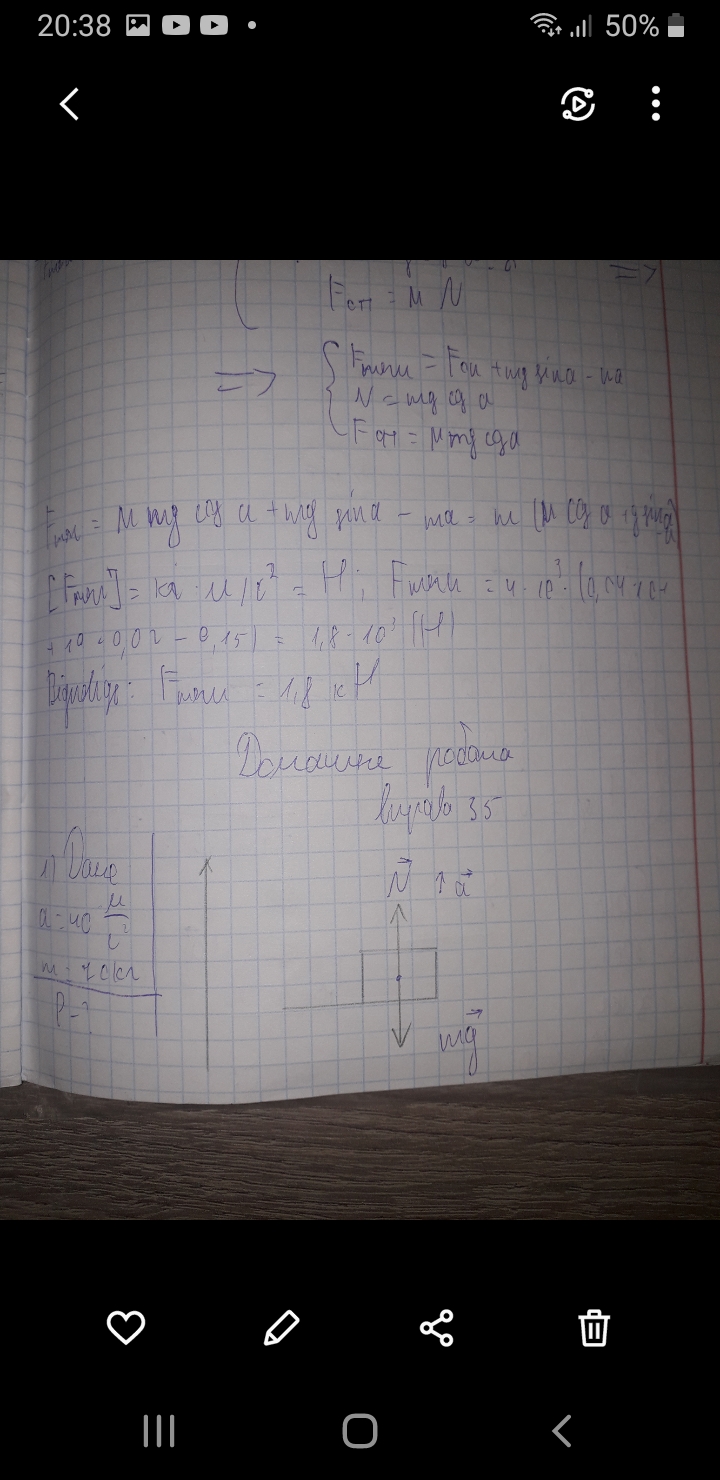 20:38
50%
Fоп = μ N
Fтяги = Fоп + mg sinα - ma
N = mg cosα
Fоп = μmg cosα
= μ mg cos α + mg sinα - ma = m
[Fтяги] = кг · м/с² = Н; Fтяги = 4 · 10³ · (0,04 · 10 +
+ 10 · 0,02 - 0,15) = 1,8 · 10³ (Н)
Відповідь: Fтяги = 1,8 кН
Домашнє робота
вправа 35
1) Дано
N⃗ ↑a⃗
a = 40 м/с²
m = 70кг
P - ?
mg⃗